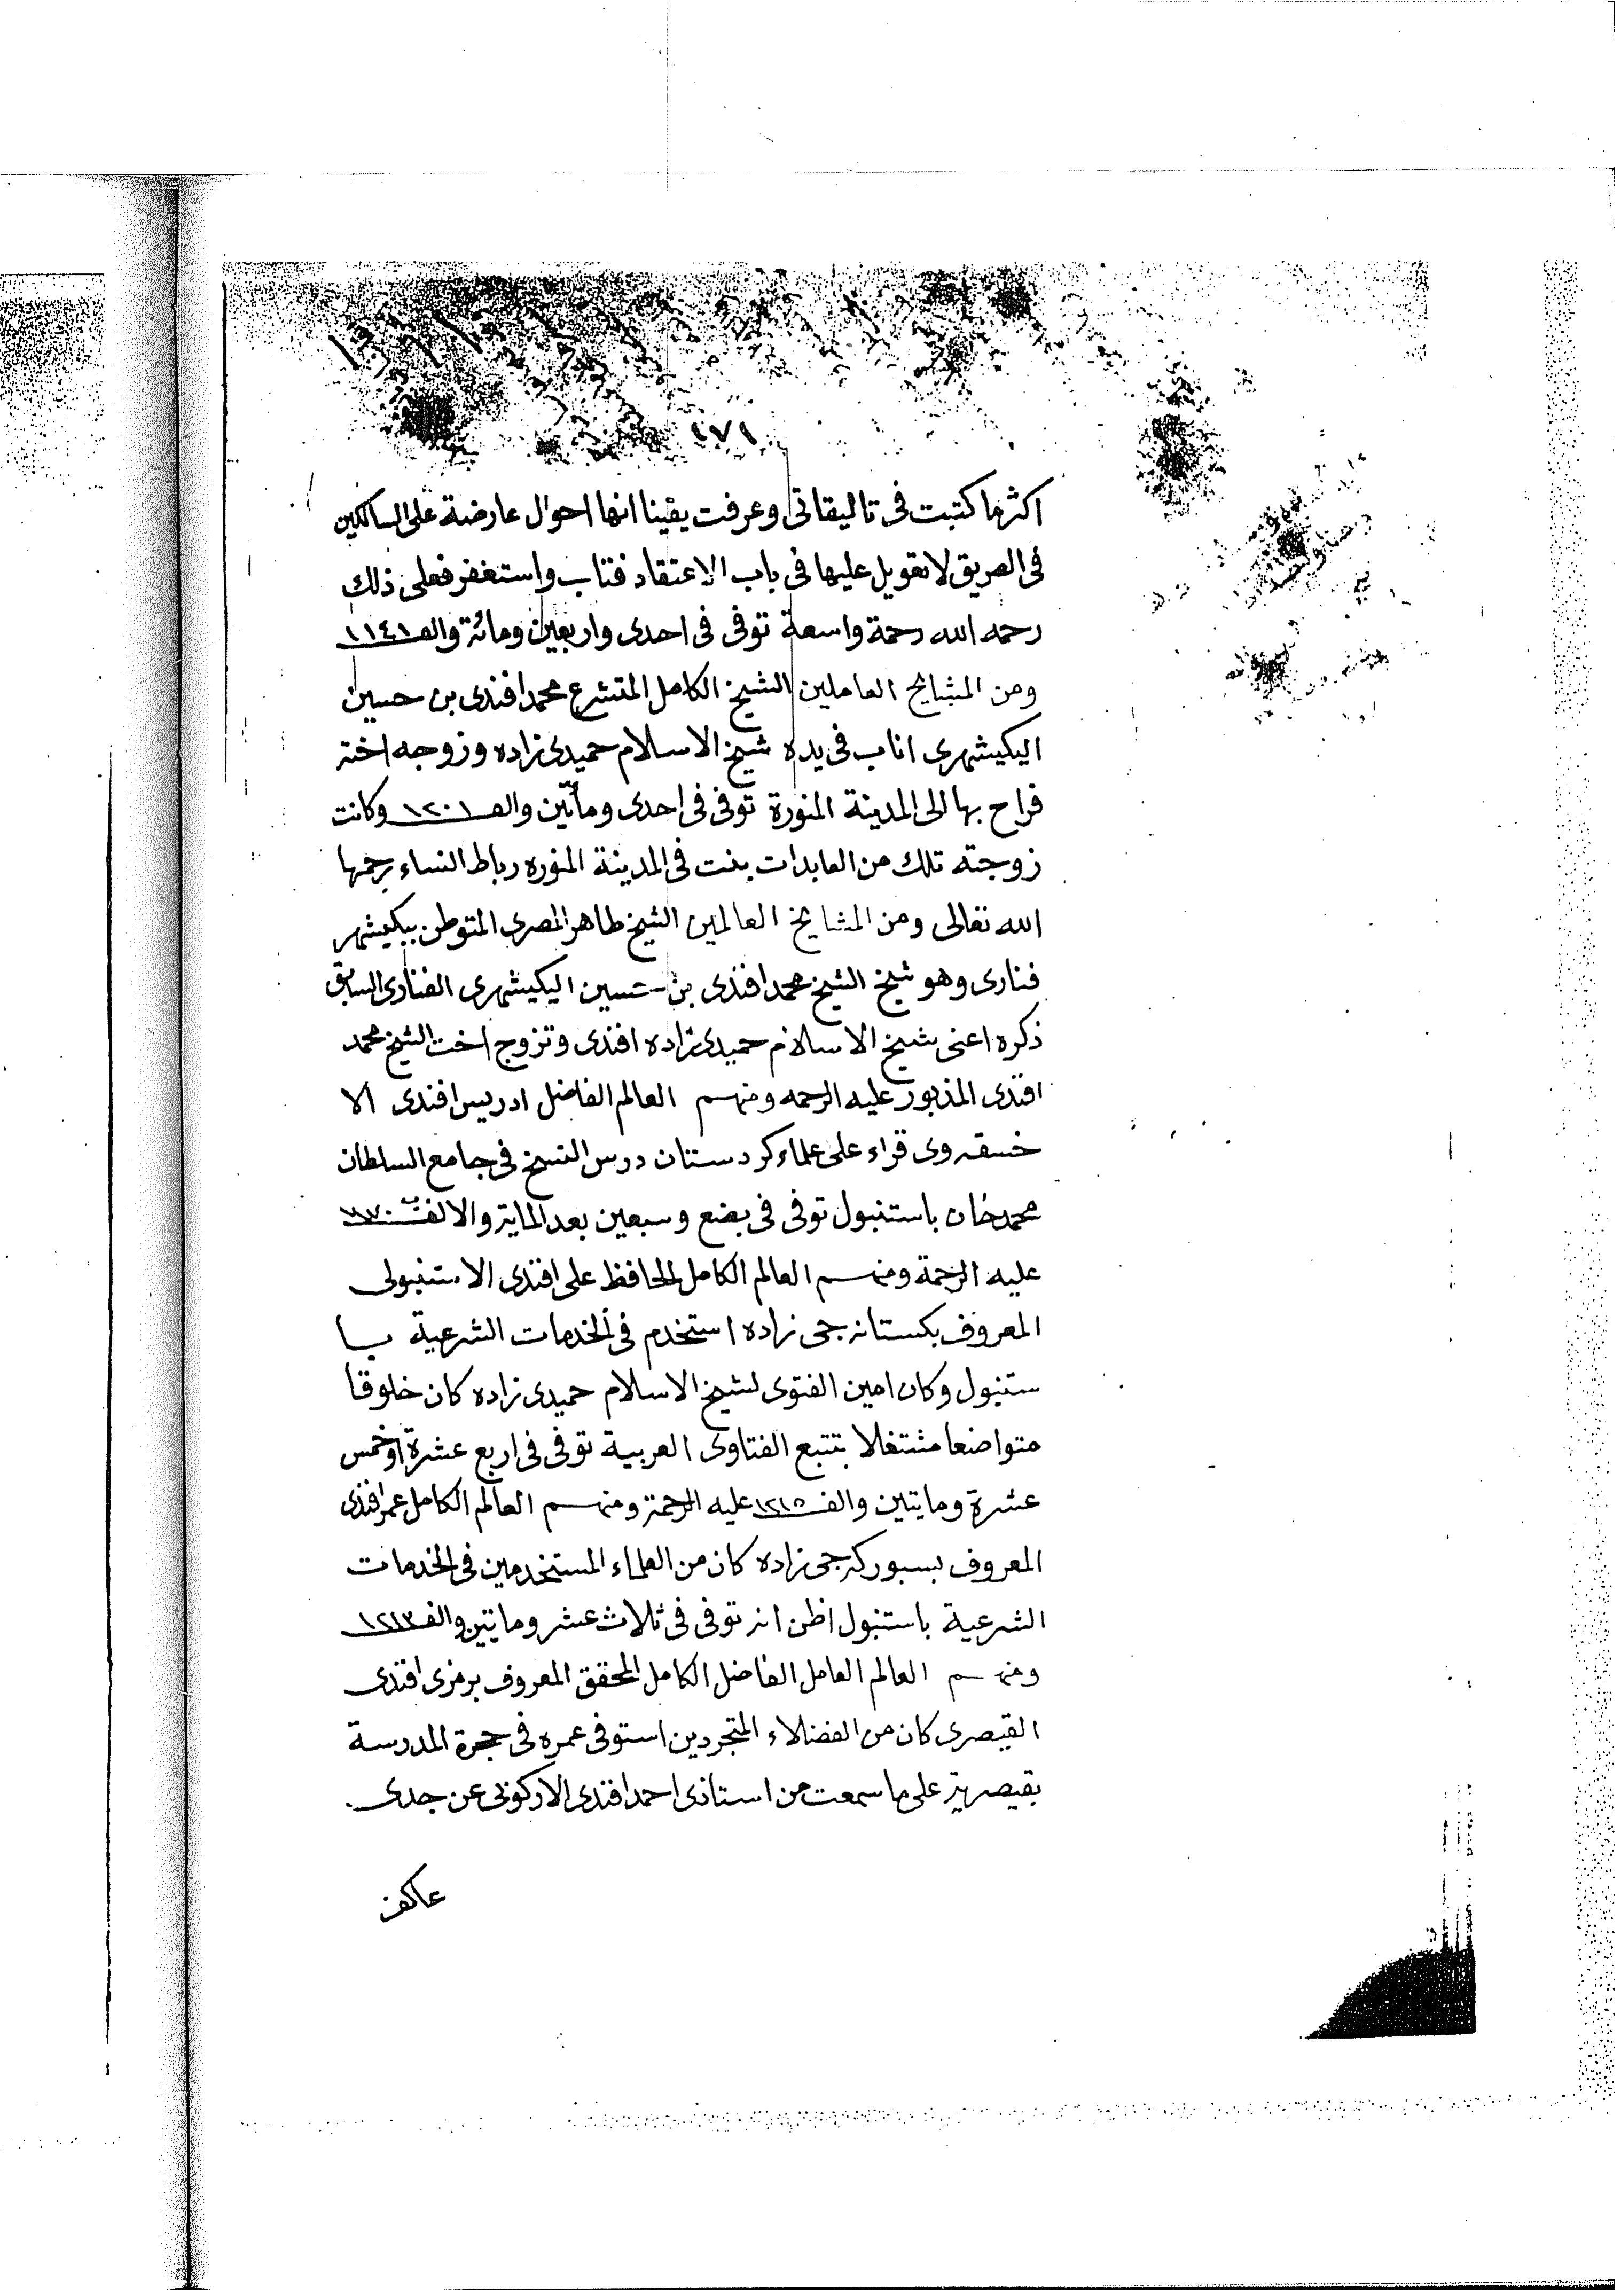 ١٧١
اكثر ما كتبت فى تاليقاتى وعرفت يقينا انها احوال عارضة على السالكين
فى الصريق لا تعويل عليها فى باب الاعتقاد فتاب واستغفر فعلى ذلك
رحمه الله رحمة واسعة توفى فى احدى واربعين ومائة والف ١١٤١
ومن المشايخ العاملين الشيخ الكامل المتشرع محمد افندى بن حسين
اليكيشهرى اناب فى يده شيخ الاسلام حميدى زاده وزوجه اخته
فراح بها الى المدينة المنورة توفى فى احدى ومأتين والف ١٢٠١ وكانت
زوجته تلك من العابدات بنت فى المدينة المنوره رباط النساء رحمها
الله تعالى ومن المشايخ العالمين الشيخ طاهر المصرى المتوطن بيكيشهر
فنارى وهو شيخ الشيخ محمد افندى بن حسين اليكيشهرى الفنارى السابق
ذكره اعنى شيخ الاسلام حميدى زاده افندى وتزوج اخت الشيخ محمد
افندى المذبور عليه الرحمه ومنهم العالم الفاضل ادريس افندى الا
خسقه وى قراء على علماء كردستان درس النسخ فى جامع السلطان
محمد خان باستنبول توفى فى بضع وسبعين بعد الماية والالف
عليه الرحمة ومنهم العالم الكامل الحافظ على افندى الاستنبولى
المعروف بكستانه جى زاده استخدم فى الخدمات الشرعية با
ستنبول وكان امين الفتوى لشيخ الاسلام حميدى زاده كان خلوقا
متواضعا مشتغلا بتتبع الفتاوى العربية توفى فى اربع عشرة او خمس
عشرة ومايتين والف ١٢١٥ عليه الرحمة ومنهم العالم الكامل عمر افندى
المعروف بسبوركه جى زاده كان من العلماء المستخدمين فى الخدمات
الشرعية باستنبول اظن انه توفى فى ثلاث عشر ومايتين والف ١٢١٣
ومنهم العالم العامل الفاضل الكامل المحقق المعروف برمزى افندى
القيصرى كان من الفضلاء المتجردين استوفى عمره فى حجرة المدرسة
بقيصريه على ما سمعت من استاذى احمد افندى الاركوبى عن جدى
عاكف